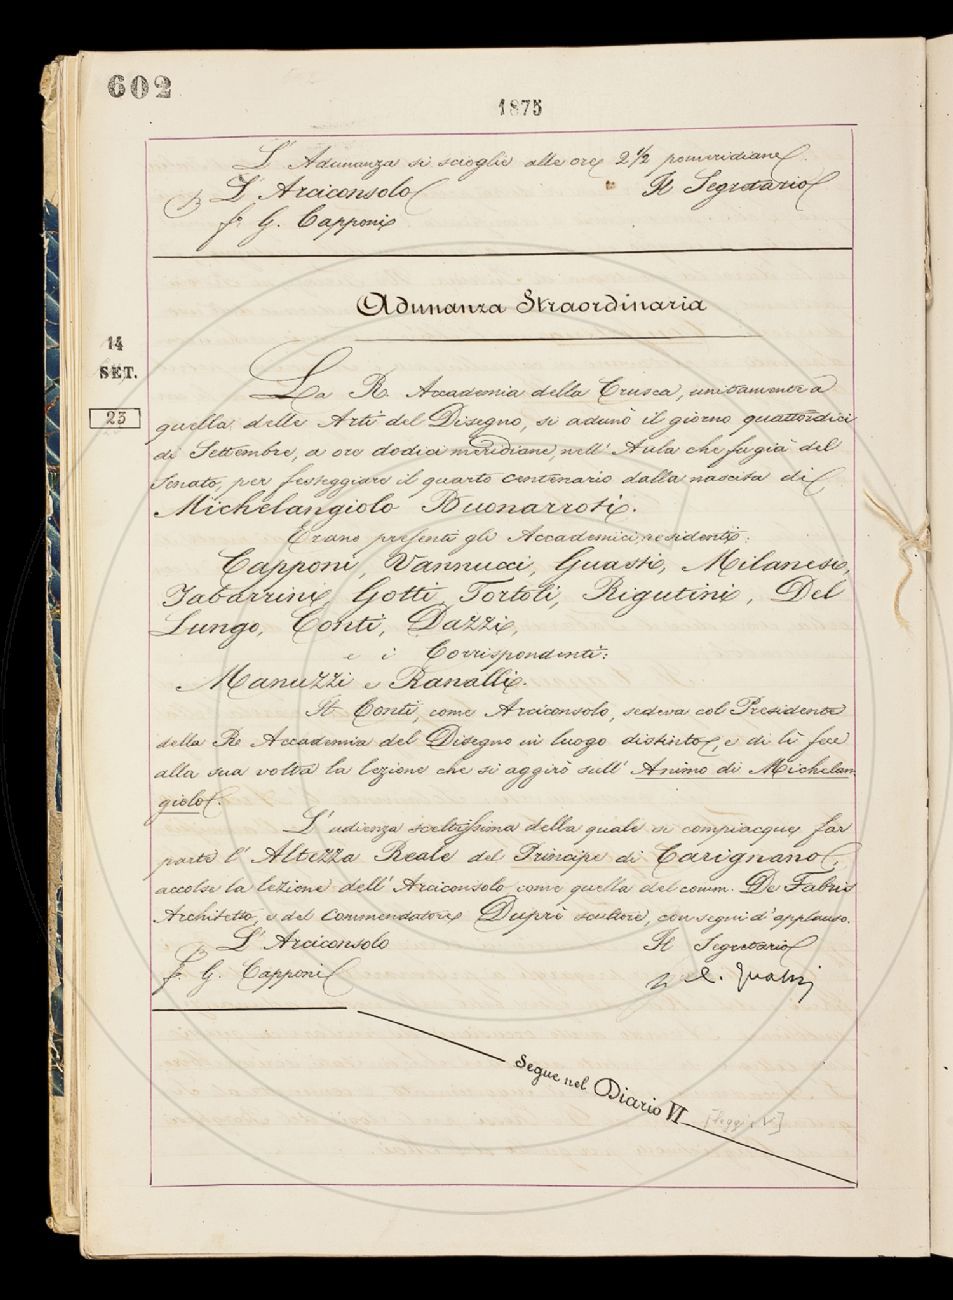 602
1875
L' Adunanza si scioglie alle ore 2 1/2 pomeridiane.
L' Arciconsolo Il Segretario
f. G. Capponi
Adunanza Straordinaria
14
SET.
23
La R. Accademia della Crusca, unitamente a
quella delle Arti del Disegno, si adunò il giorno quattordici
di Settembre, a ore dodici meridiane, nell' Aula che fu già del
Senato, per festeggiare il quarto centenario dalla nascita di
Michelangiolo Buonarroti.
Erano presenti gli Accademici residenti:
Capponi, Vannucci, Guasti, Milanesi,
Tabarrini, Gotti, Tortoli, Rigutini, Del
Lungo, Conti, Dazzi,
e i Corrispondenti:
Manuzzi e Ranalli.
Il Conti, come Arciconsolo, sedeva col Presidente
della R. Accademia del Disegno in luogo distinto, e di lì fece
alla sua volta la lezione che si aggirò sull' Animo di Michelan-
giolo.
L' udienza sceltissima della quale si compiacque far
parte l' Altezza Reale del Principe di Carignano,
accolse la lezione dell' Arciconsolo come quella del comm. De Fabris
Architetto, e del Commendatore Dupré scultore, con segni d' applauso.
L' Arciconsolo Il Segretario
f. G. Capponi C. Guasti
Segue nel Diario VI
[leggi: V]